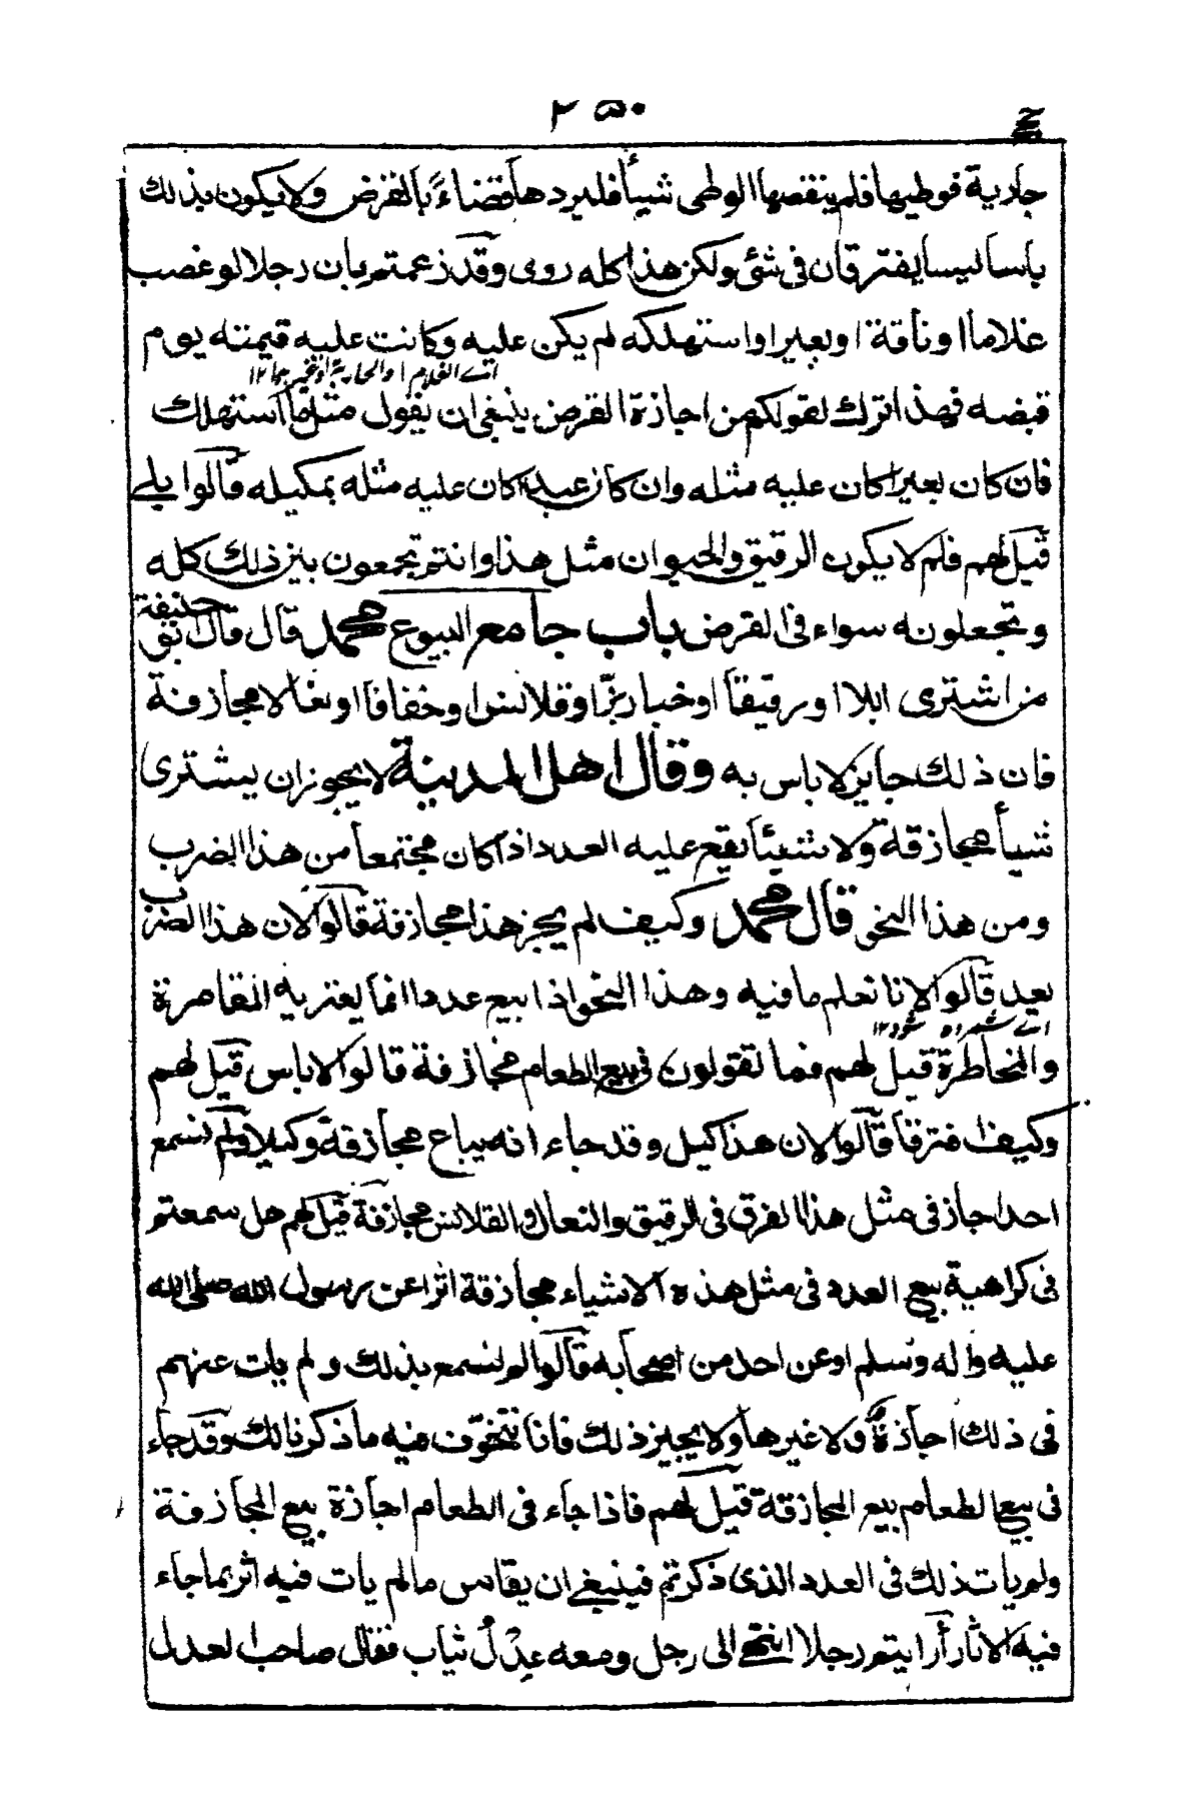 ٢٥٠
جارية فوطيها فلم ينقصها الوطى شيأ فليردها قضاءً بالقرض ولا يكون بذلك
باسا ليسا يفترقان فى شئ ولكن هذا كله روى وقد زعمتم بان رجلا لو غصب
غلاما او ناقة او بعيرا واستهلكه لم يكن عليه وكانت عليه قيمته يوم
اے الغلام او الجارية او غيرهما ١٢
قبضه فهذا اترك لقولكم من اجازة القرض ينبغى ان يقول مثل ما استهلك
فان كان بعيرا كان عليه مثله وان كان عبدا كان عليه مثله بمكيله قالوا بلى
قيل لهم فلم لا يكون الرقيق والحيوان مثل هذا وانتم تجمعون بين ذلك كله
وتجعلونه سواء فى القرض باب جامع البيوع محمد قال قال ابو حنيفة
من اشترى ابلا او رقيقا او خبا ربزا وقلانس او خفافا او نعالا مجازفة
فان ذلك جايز لا باس به وقال اهل المدينة لا يجوز ان يشترى
شيأ مجازفة ولا شيئا يقع عليه العدد اذا كان مجتمعا من هذا الضرب
ومن هذا النحو قال محمد وكيف لم يجز هذا مجازفة قالوا لان هذا الضرب
يعد قالوا لانا نعلم ما فيه وهذا النحو اذا بيع عددا انما يعتريه المقامرة
اے شمرده شود ١٢
والمخاطرة قيل لهم فما تقولون فى بيع الطعام مجازفة قالوا لا باس قيل لهم
وكيف افترقا قالوا لان هذا كيل وقد جاء انه يباع مجازفة وكيلا ولم نسمع
احدا جاز فى مثل هذا الفرق فى الرقيق والنعال والقلانس مجازفة قيل لهم هل سمعتم
فى كراهية بيع العدد فى مثل هذه الاشياء مجازفة اثرا عن رسول الله صلى الله
عليه واله وسلم او عن احد من اصحابه قالوا لم نسمع بذلك ولم يات عنهم
فى ذلك اجازة ولا غيرها ولا يجيز ذلك فانا نتخوف فيه ما ذكرنا لك وقد جاء
فى بيع الطعام بيع المجازفة قيل لهم فاذا جاء فى الطعام اجازة بيع المجازفة
ولم يات ذلك فى العدد الذى ذكرتم فينبغى ان يقاس ما لم يات فيه اثر بما جاء
فيه الاثار أرايتم رجلا انتهى الى رجل ومعه عِدْلُ ثياب فقال صاحب العدل